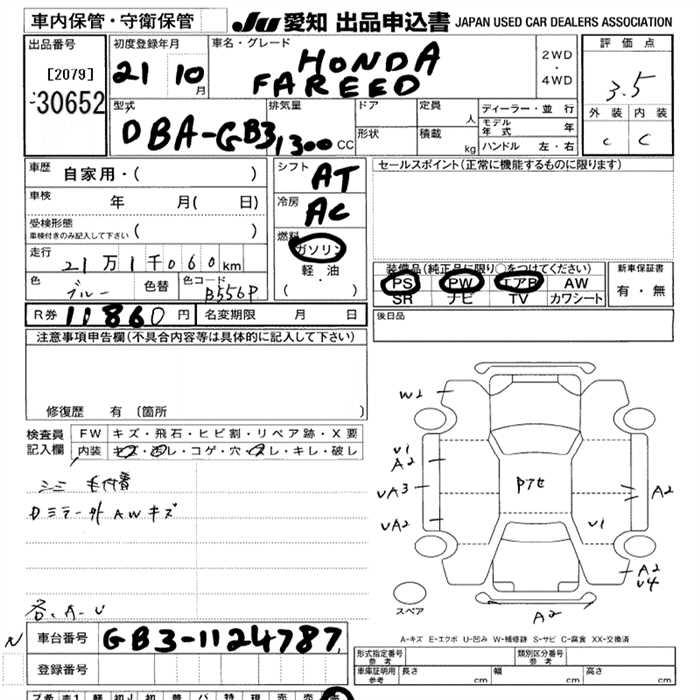 車内保管・守衛保管
JU 愛知 出品申込書 JAPAN USED CAR DEALERS ASSOCIATION
出品番号
[2079]
30652
初度登録年月
21 10 月
車名・グレード
HONDA
FAREED
2WD
・
4WD
評価点
3.5
外装 内装
C C
型式
DBA-GB3
排気量
1,300 CC
ドア
形状
定員
人
積載
kg
ディーラー・並行
モデル年式 年
ハンドル 左・右
車歴
自家用・( )
車検
年 月( 日)
受検形態
車検付きのみ記入して下さい ( )
走行
21万1千060km
色
ブルー
色替
色コード
B556P
シフト
AT
冷房
AC
燃料
ガソリン
軽・油
( ・ )
セールスポイント(正常に機能するものに限ります)
装備品(純正品に限り○をつけてください)
PS PW エアB AW
SR ナビ TV カワシート
新車保証書
有・無
R券 11860 円
名変期限 月 日
後日品
注意事項申告欄(不具合内容等は具体的に記入して下さい)
修復歴 有 〔箇所 〕
検査員記入欄
FW キズ・飛石・ヒビ割・リペア跡・X要
内装 キズ・汚レ・コゲ・穴・スレ・キレ・破し
Dミラー外 AWキズ
各、A-U
W2
U1
A2
UA3
UA2
A2
U1
A2
U4
A2
スペア
A-キズ E-エクボ U-凹み W-補修跡 S-サビ C-腐食 XX-交換済
N
車台番号
GB3-1124787
登録番号
形式指定番号
参考
類別区分番号
参考
車庫証明用
参考
長さ cm
幅 cm
高さ cm